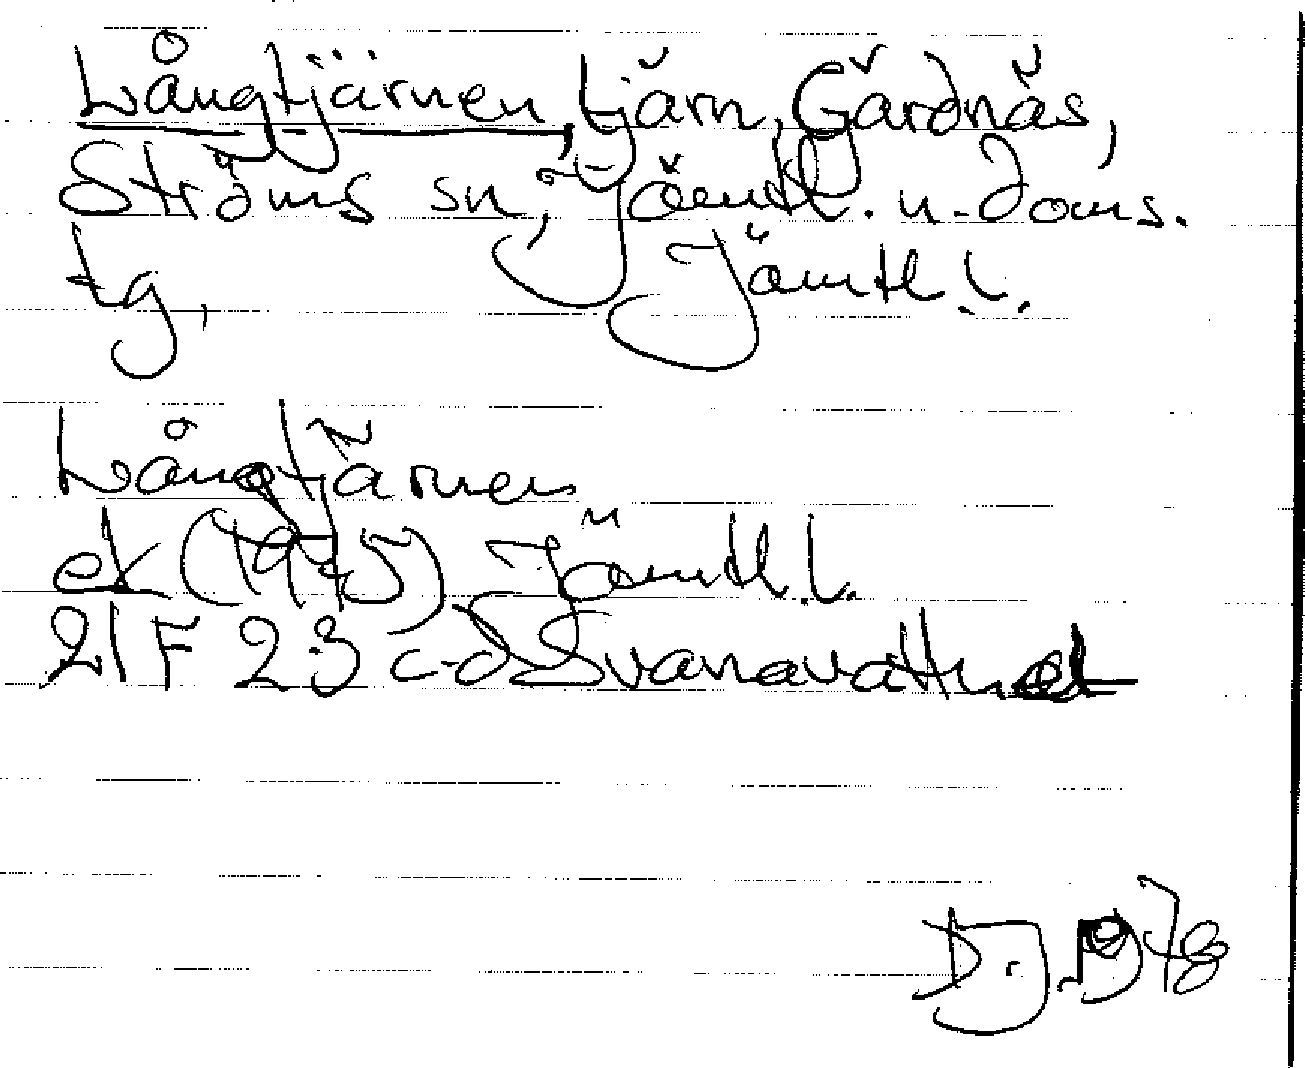 Långtjärnen, tjärn, Gärdnäs,
Ströms sn, Jämtl. n. doms.
tg, Jämtl l.
Långtjärnen
ek (1975) Jämtl. l.
21F 23 c-d Svanavattnet
D.J. 1978